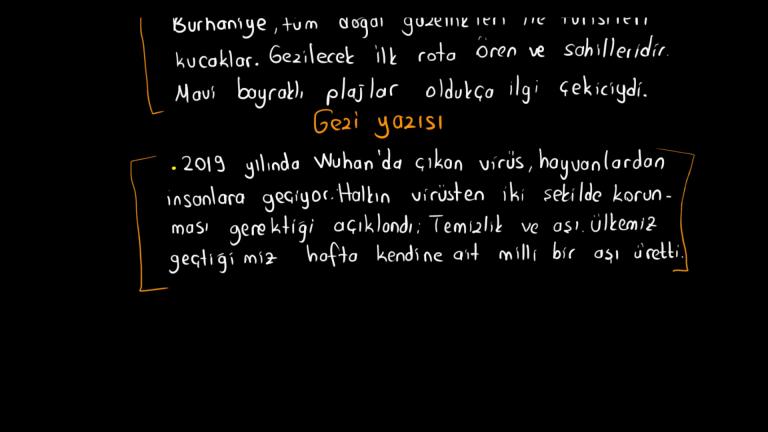 Burhaniye, tüm doğal güzellikleri ile turistleri
kucaklar. Gezilecek ilk rota Ören ve sahilleridir.
Mavi bayraklı plajlar oldukça ilgi çekiciydi.
Gezi yazısı
. 2019 yılında Wuhan'da çıkan virüs, hayvanlardan
insanlara geçiyor. Halkın virüsten iki şekilde korun-
ması gerektiği açıklandı; Temizlik ve aşı. Ülkemiz
geçtiğimiz hafta kendine ait milli bir aşı üretti.